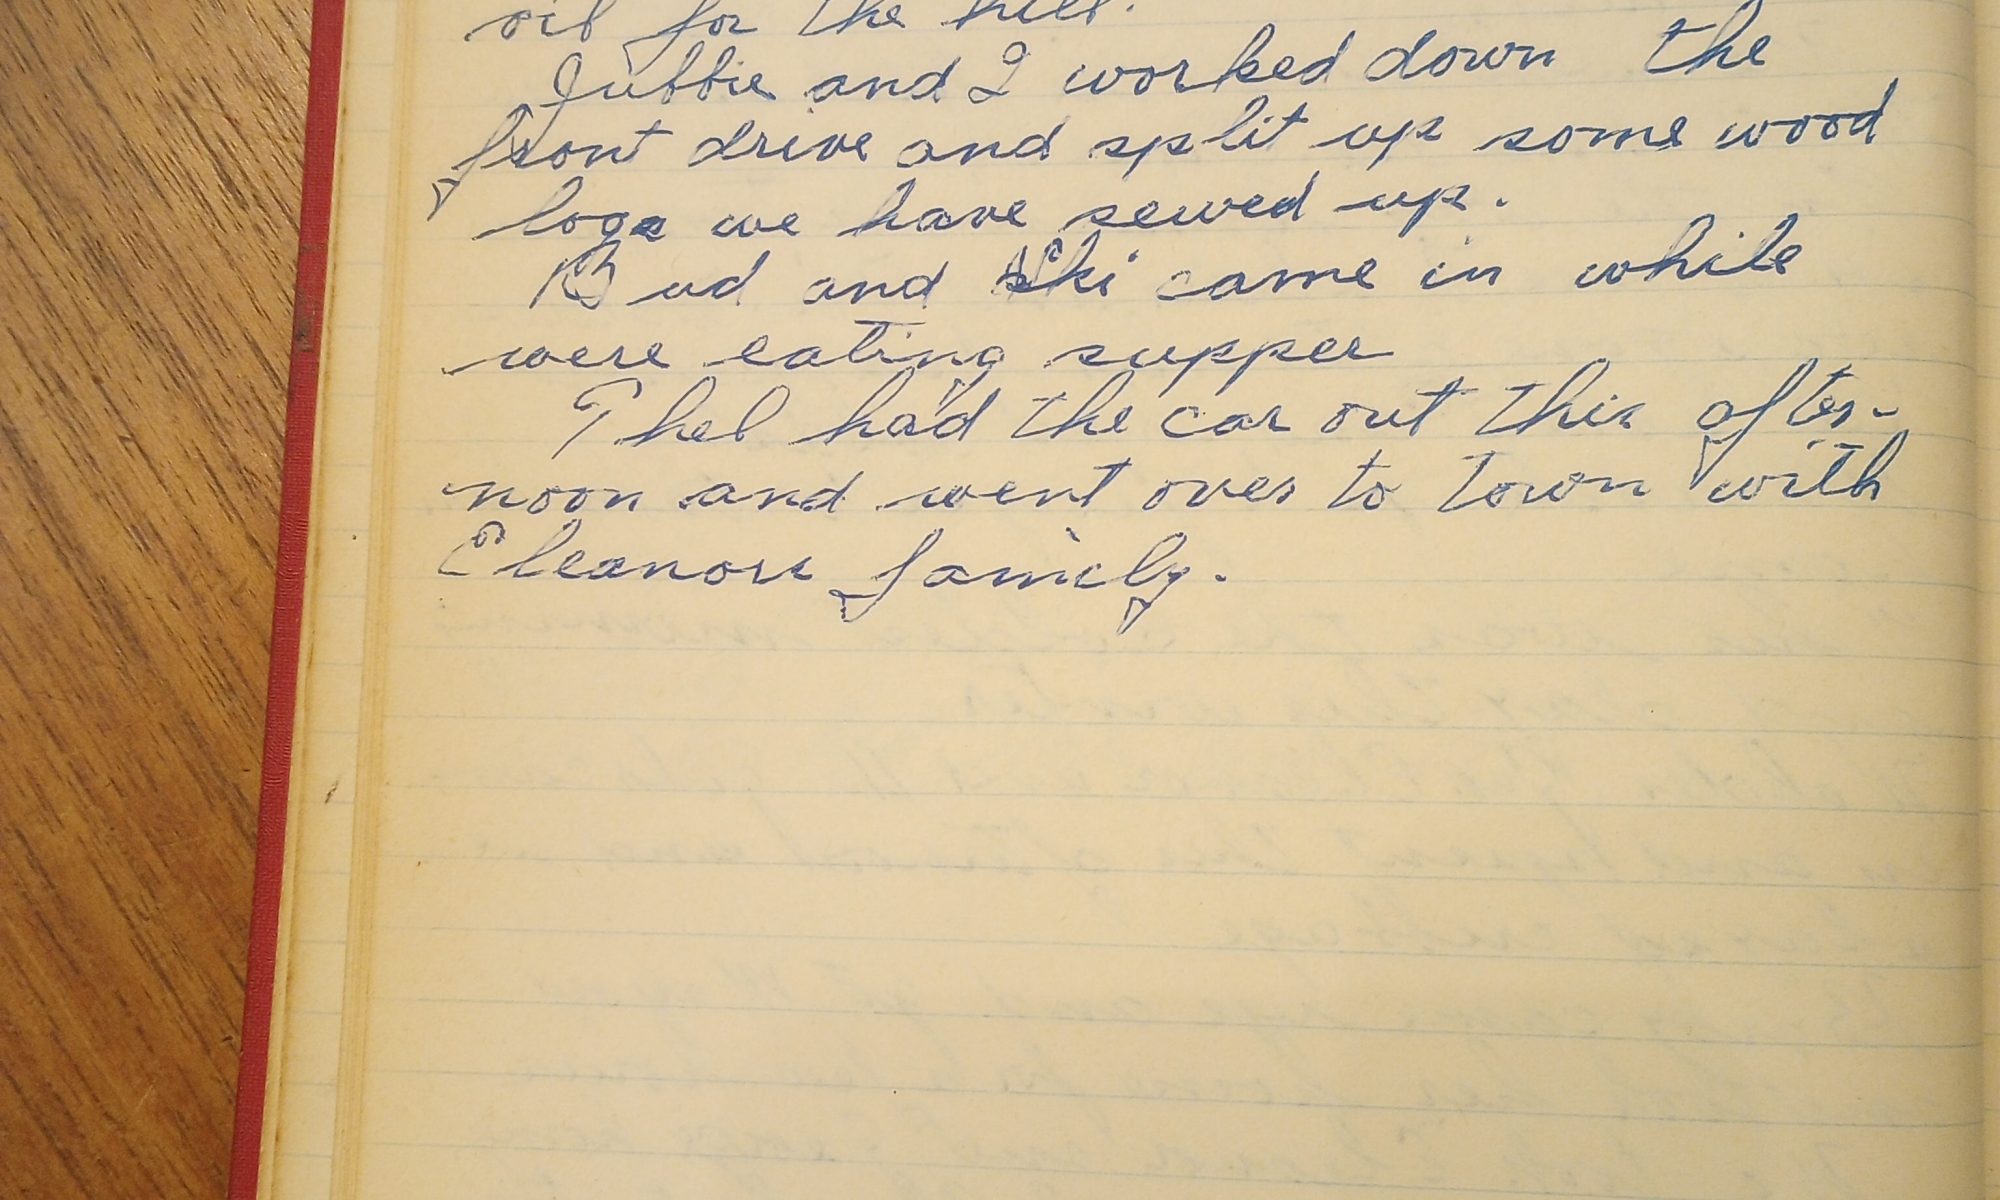 oil for the hill.
Jubbie and I worked down the
front drive and split up some wood
logs we have sewed up.
Bud and Ski came in while
were eating supper
Thel had the car out this after-
noon and went over to town with
Eleanors family.